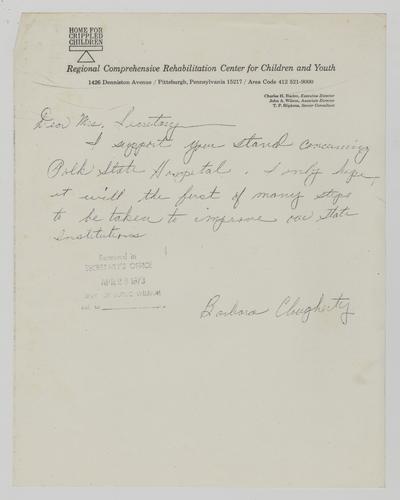 HOME FOR
CRIPPLED
CHILDREN
Regional Comprehensive Rehabilitation Center for Children and Youth
1426 Denniston Avenue / Pittsburgh, Pennsylvania 15217 / Area Code 412 521-9000
Charles H. Executive Director
John A. Wilson, Associate Director
T. P. Hipkens, Senior Consultant
Dear Mrs. Secretary
I support your stand concerning
Polk State Hospital. I only hope,
it will the first of many steps
to be taken to improve our State
Institutions
Received in
SECRETARY'S OFFICE
APR 28 1973
DEPT. OF PUBLIC WELFARE
Barbara Clougherty